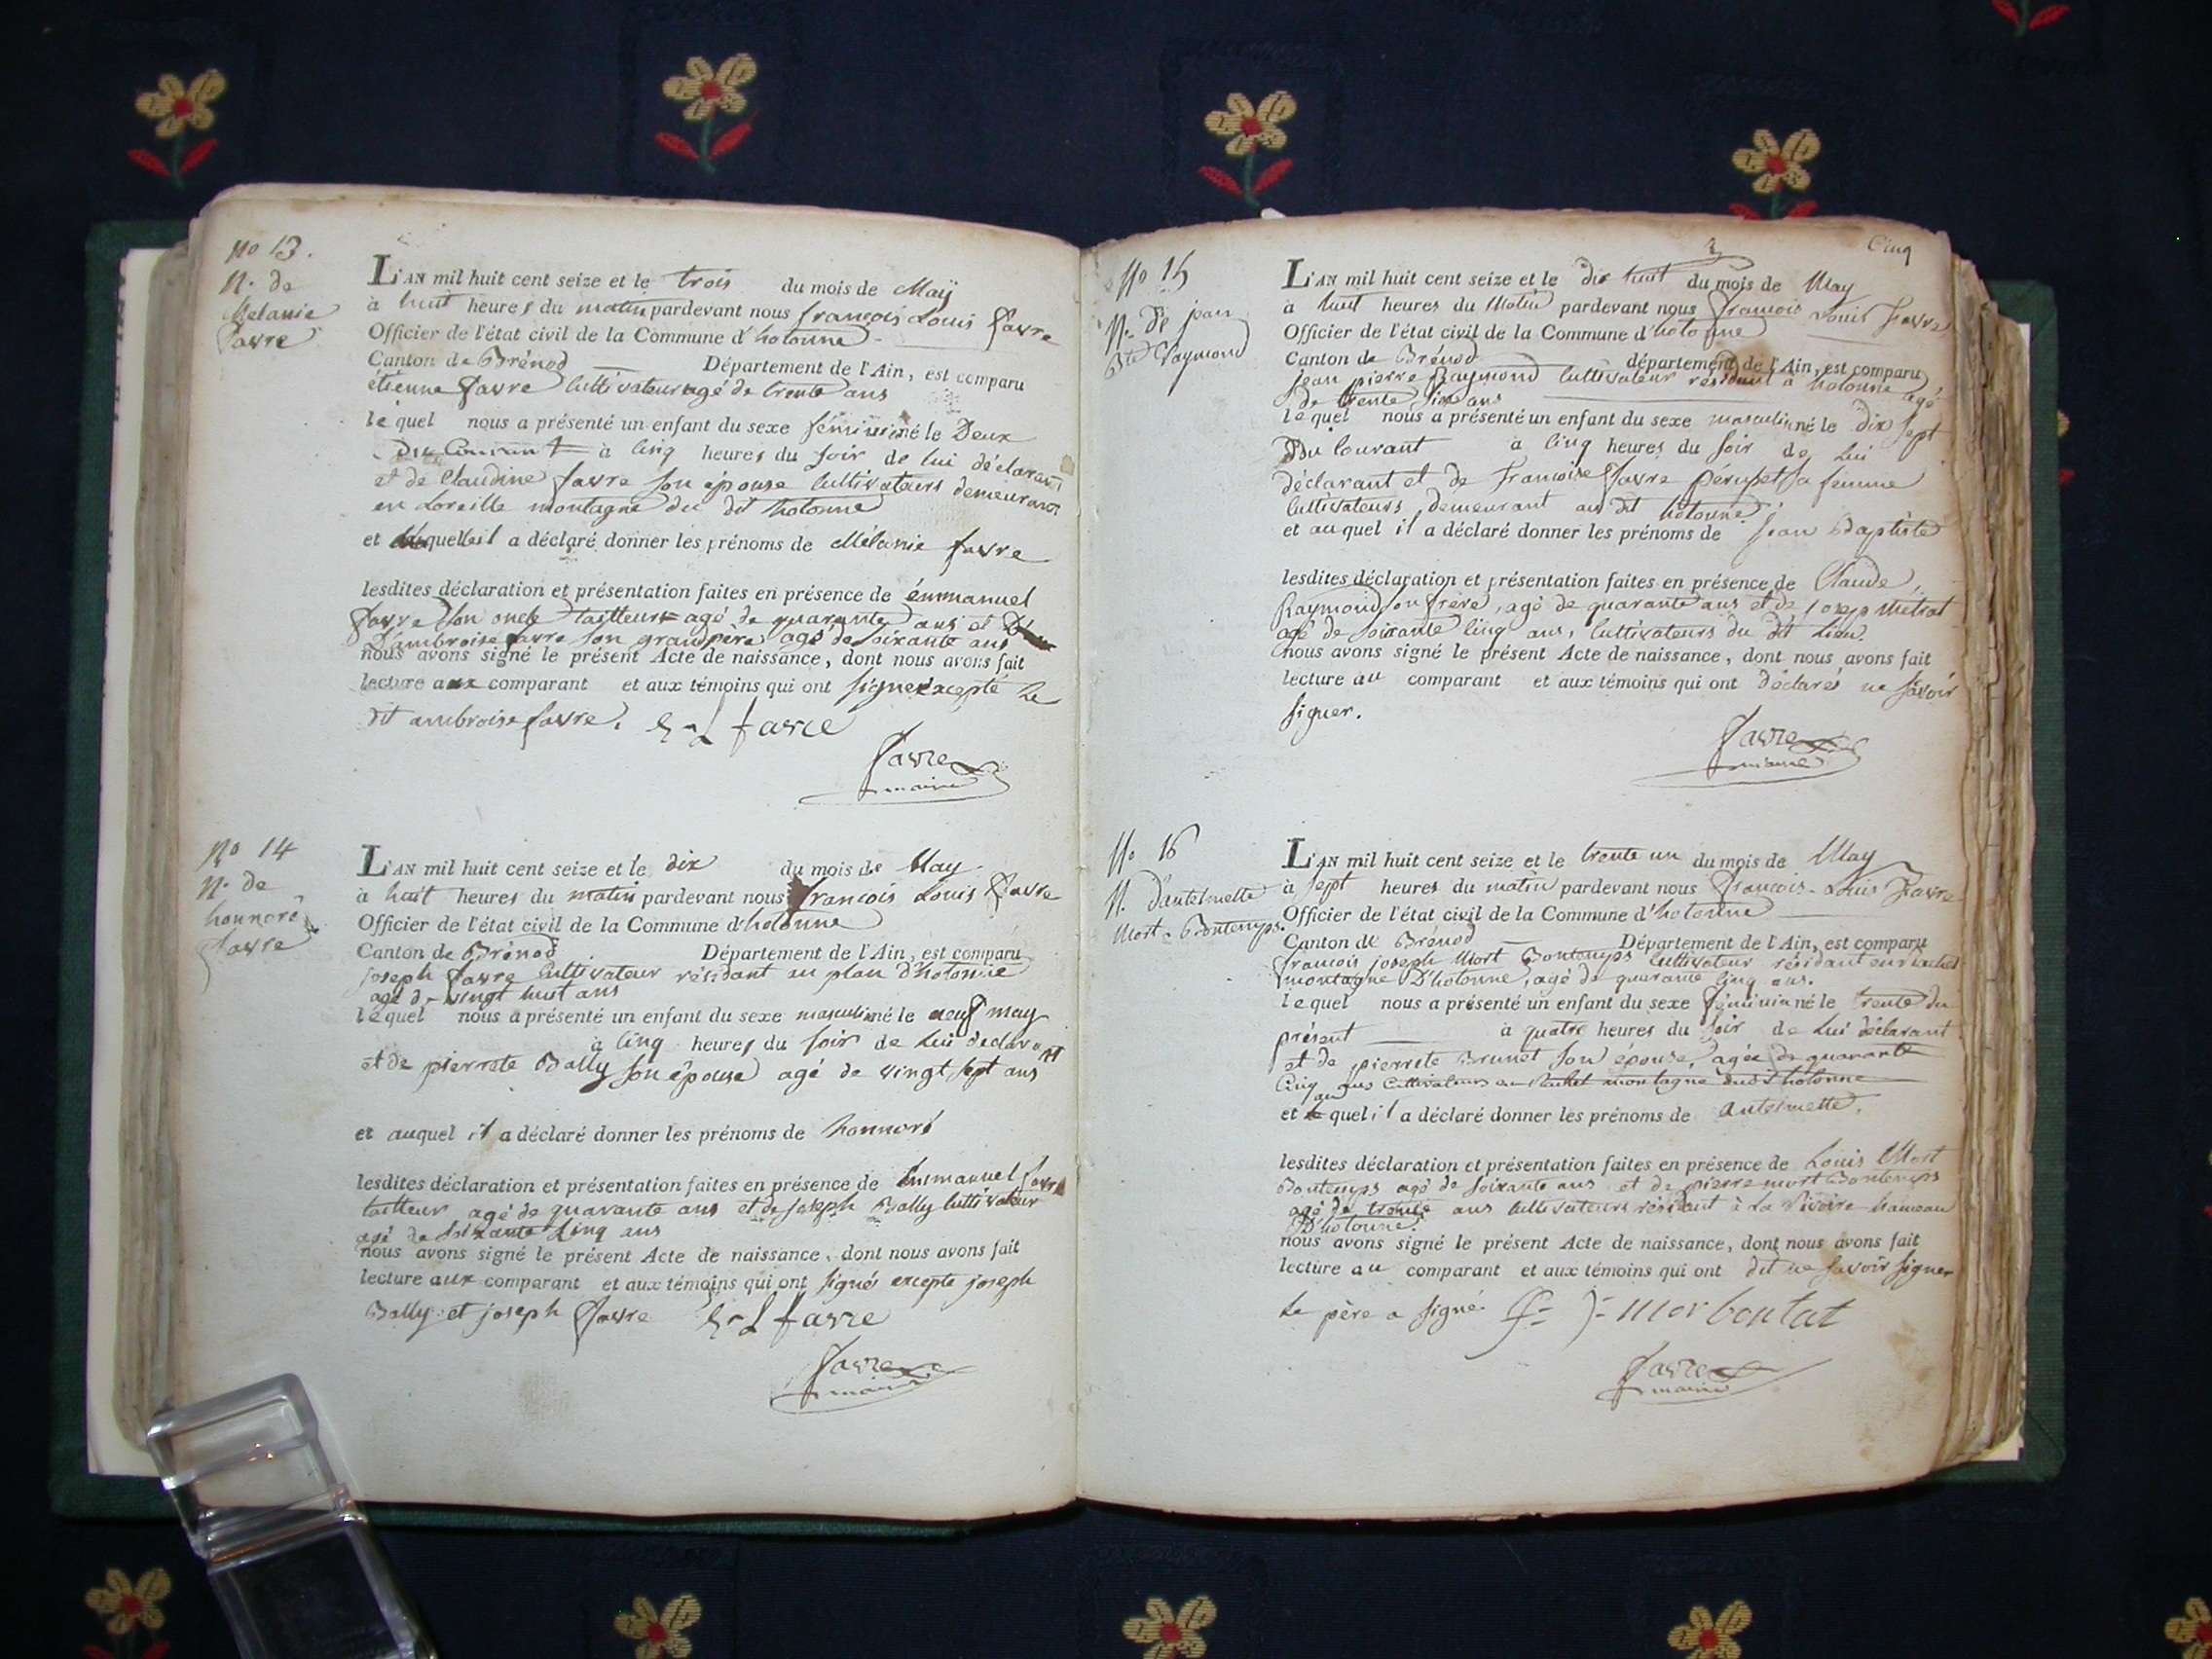 No 13.
N. de
Melanie
favre
L'AN mil huit cent seize et le trois du mois de Maÿ
à huit heures du matin pardevant nous françois Louis favre
Officier de l'état civil de la Commune d'hotonne
Canton de Brénod Département de l'Ain, est comparu
étienne favre Cultivateur agé de trente ans
lequel nous a présenté un enfant du sexe féminin né le Deux
Du Courant à Cinq heures du soir de lui déclarant
et de Claudine favre son épouse Cultivateurs demeurant
en Loreille montagne du dit hotonne
et quelle il a déclaré donner les prénoms de Mélanie favre
lesdites déclaration et présentation faites en présence de émmanuel
favre son oncle tailleur agé de quarante ans et
D'ambroise favre son grand père agé de soixante ans
nous avons signé le présent Acte de naissance, dont nous avons fait
lecture aux comparant et aux témoins qui ont signer excepté le
dit ambroise favre. E-L favre
favre
maire
No 14
N. de
honnoré
favre
L'AN mil huit cent seize et le dix du mois de May
à huit heures du matin pardevant nous françois Louis favre
Officier de l'état civil de la Commune d'hotonne
Canton de Brénod Département de l'Ain, est comparu
joseph favre Cultivateur résidant au plan d'hotonne
agé de vingt huit ans
lequel nous a présenté un enfant du sexe masculin né le neuf may
à Cinq heures du soir de Lui déclarant
et de pierrete Bally son épouse agé de vingt sept ans
et auquel il a déclaré donner les prénoms de honnoré
lesdites déclaration et présentation faites en présence de Emmanuel favre
tailleur agé de quarante ans et de joseph Bally Cultivateur
agé de soixante Cinq ans
nous avons signé le présent Acte de naissance, dont nous avons fait
lecture aux comparant et aux témoins qui ont signés excepte joseph
Bally et joseph favre E-L favre
favre
maire
Cinq
No 15
N. De jean
Bte Raymond
L'AN mil huit cent seize et le dix huit du mois de May
à huit heures du Matin pardevant nous françois Louis Favre
Officier de l'état civil de la Commune d'hotonne
Canton de Brénod département de l'Ain, est comparu
jean pierre Raymond Cultivateur résidant à hotonne, agé
de trente six ans
lequel nous a présenté un enfant du sexe masculin né le dix sept
Du Courant à Cinq heures du soir de Lui
déclarant et de Francoise favre Péruset sa femme
Cultivateurs, demeurant au dit hotonne
et auquel il a déclaré donner les prénoms de Jean Baptiste
lesdites déclaration et présentation faites en présence de Claude
Raymond son frère, agé de quarante ans et de joseph Métrat
agé de soixante Cinq ans, Cultivateurs du dit Lieu.
nous avons signé le présent Acte de naissance, dont nous avons fait
lecture au comparant et aux témoins qui ont déclarés ne savoir
signer.
favre
maire
No 16
N. D'antelmette
Mort-Bontemps.
L'AN mil huit cent seize et le trente un du mois de May
à sept heures du matin pardevant nous françois-Louis Favre
Officier de l'état civil de la Commune d'hotonne
Canton de Brénod Département de l'Ain, est comparu
françois joseph Mort Bontemps Cultivateur résidant en
montagne D'hotonne, agé de quarante Cinq ans.
lequel nous a présenté un enfant du sexe féminin né le trente du
présent à quatre heures du soir de Lui déclarant
et de pierrete Brunet son épouse, agée de quarante
Cinq ans Cultivateurs en montagne dud hotonne
et quel il a déclaré donner les prénoms de antelmette.
lesdites déclaration et présentation faites en présence de Louis Mort
Bontemps agé de soixante ans et de pierre mort Bontemps
agé de trente ans Cultivateurs résidant à La Rivoire hameau
D'hotonne.
nous avons signé le présent Acte de naissance, dont nous avons fait
lecture au comparant et aux témoins qui ont dit ne savoir signer
Le père a signé. f=j=morbontat
favre
maire